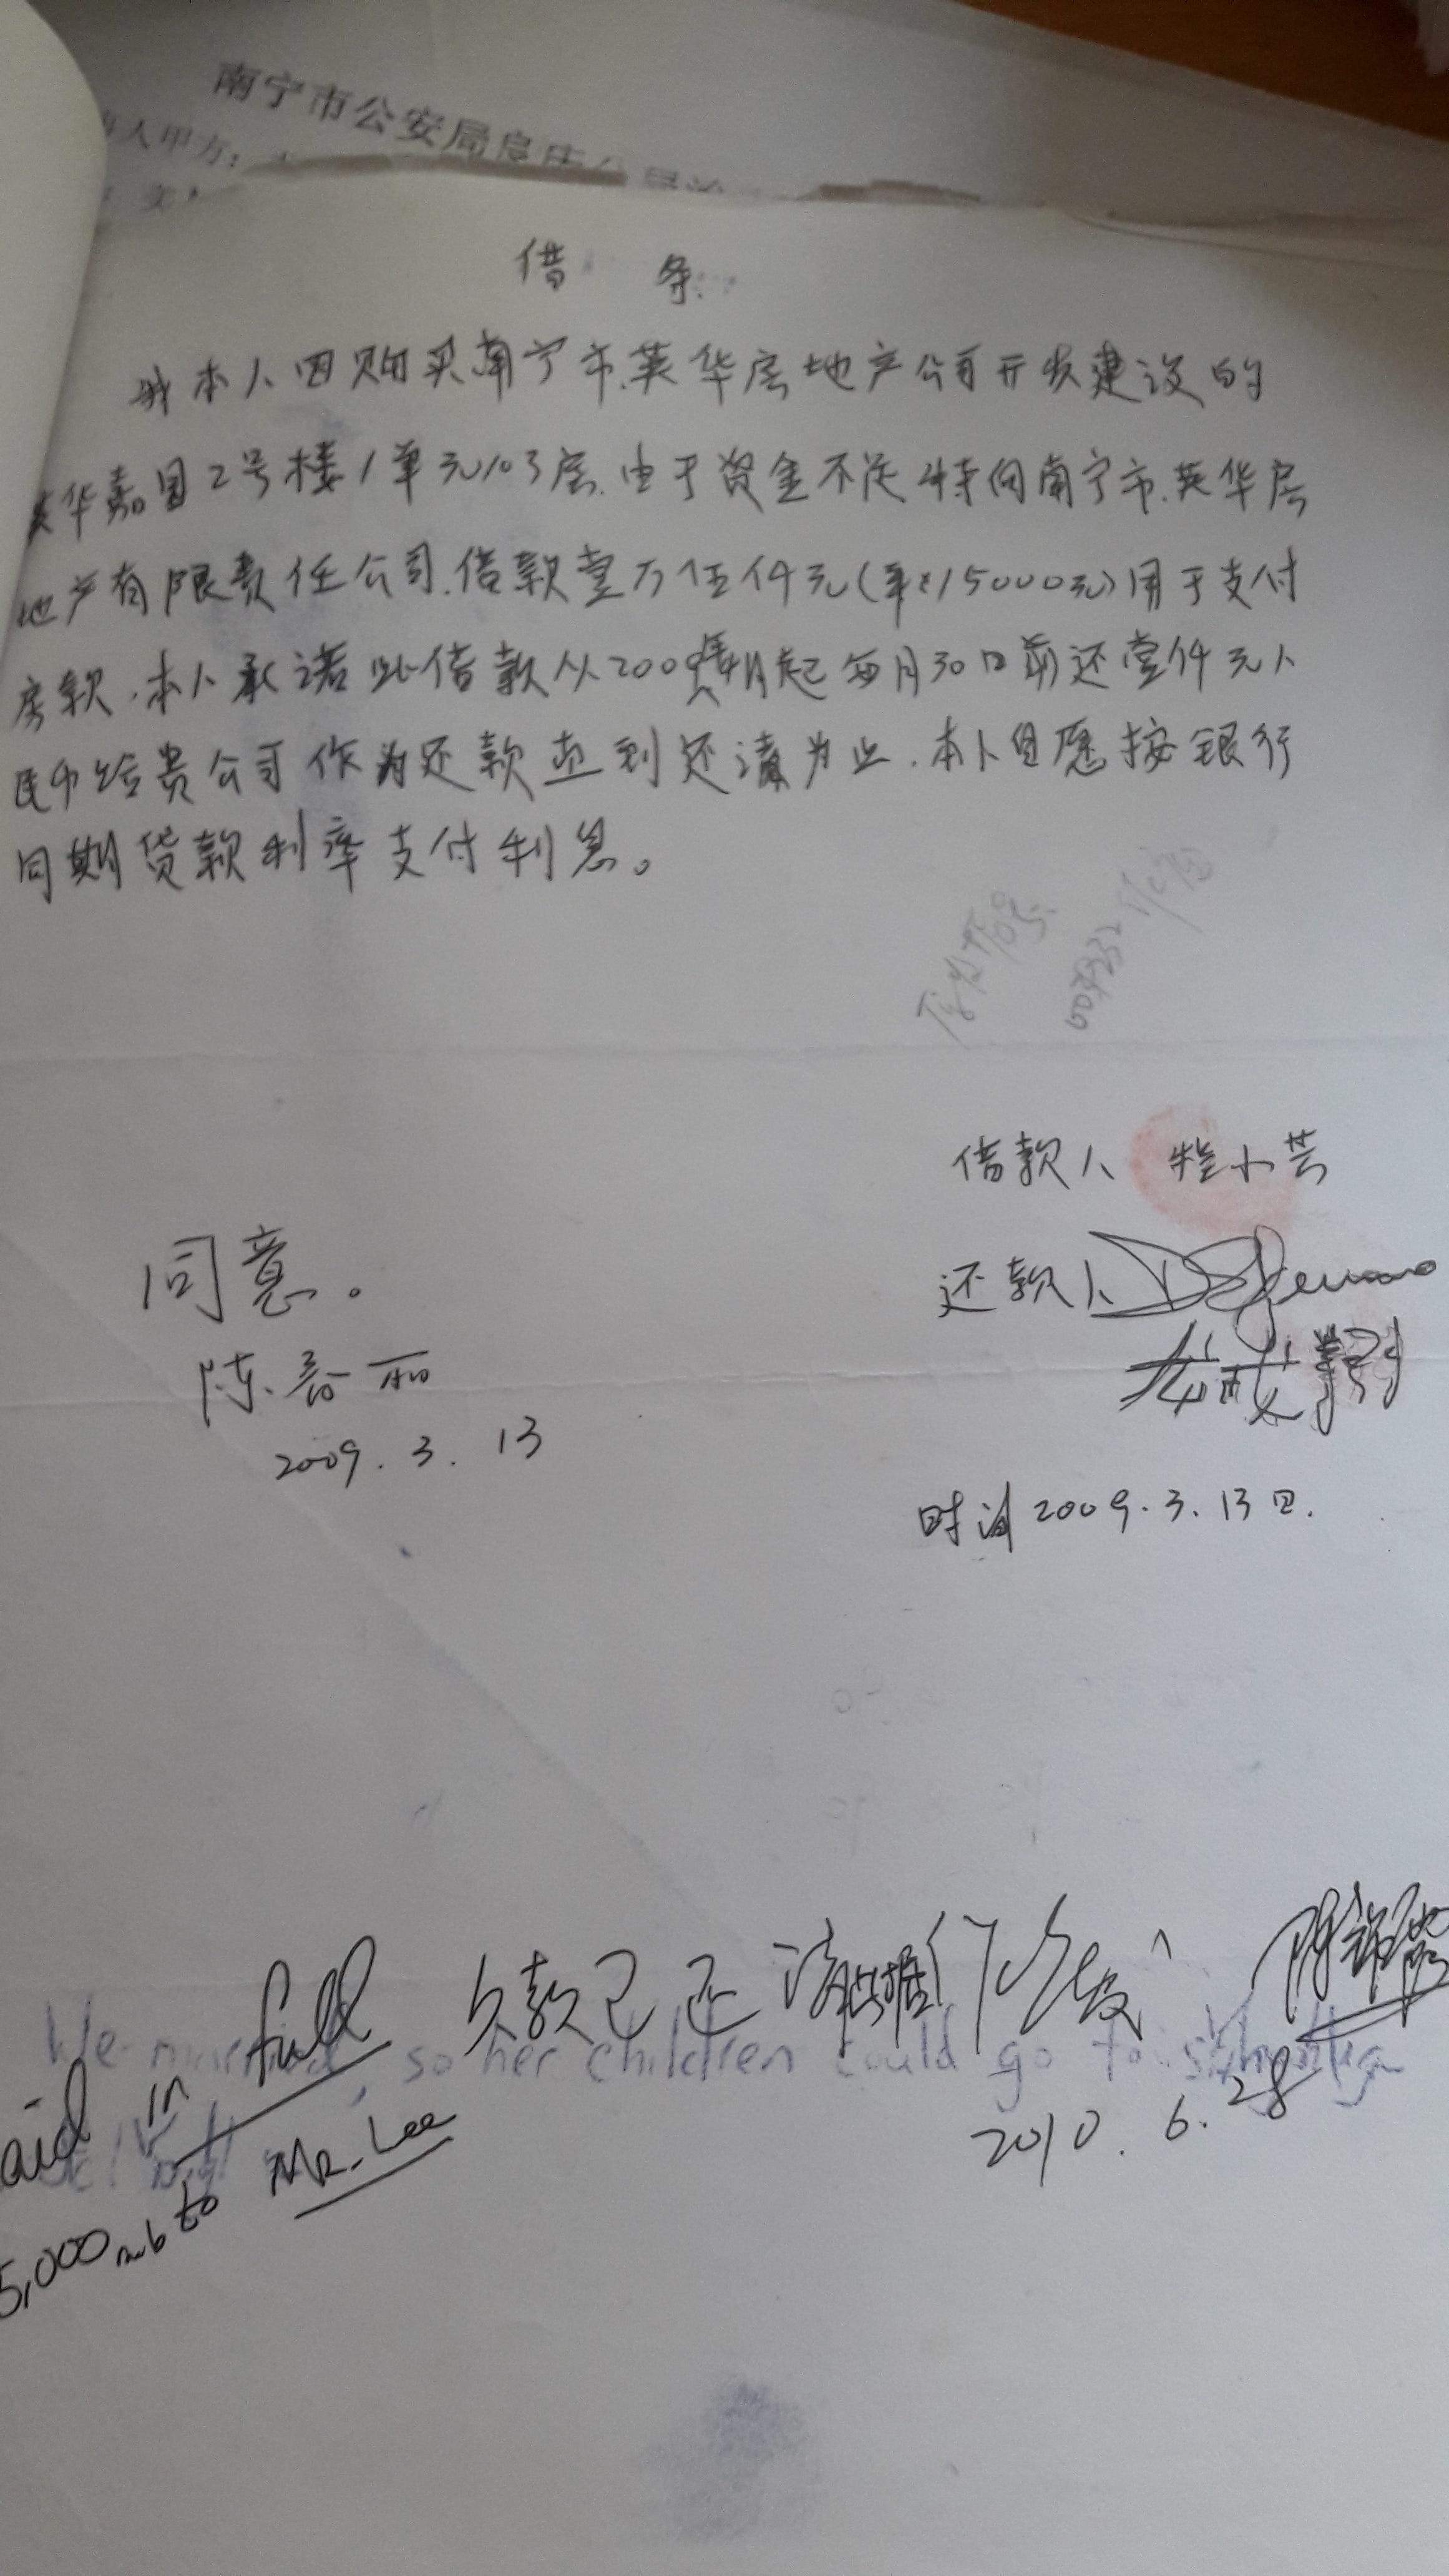 南宁市公安局
人甲方：
借 条
我本人因购买南宁市英华房地产公司开发建设的
英华嘉园2号楼1单元103房.由于资金不足特向南宁市.英华房
地产有限责任公司.借款壹万伍仟元(￥:15000元)用于支付
房款.本人承诺此借款从2009年4月起每月30日前还壹仟元人
民币给贵公司作为还款直到还清为止.本人自愿按银行
同期贷款利率支付利息。
借款人 小芸
同意。
还款人
陈 丽
2009.3.13
时间2009.3.13日.
欠款已还清
We married, so her children could go to
aid in full
2010.6.28
5,000 rmb to Mr. Lee